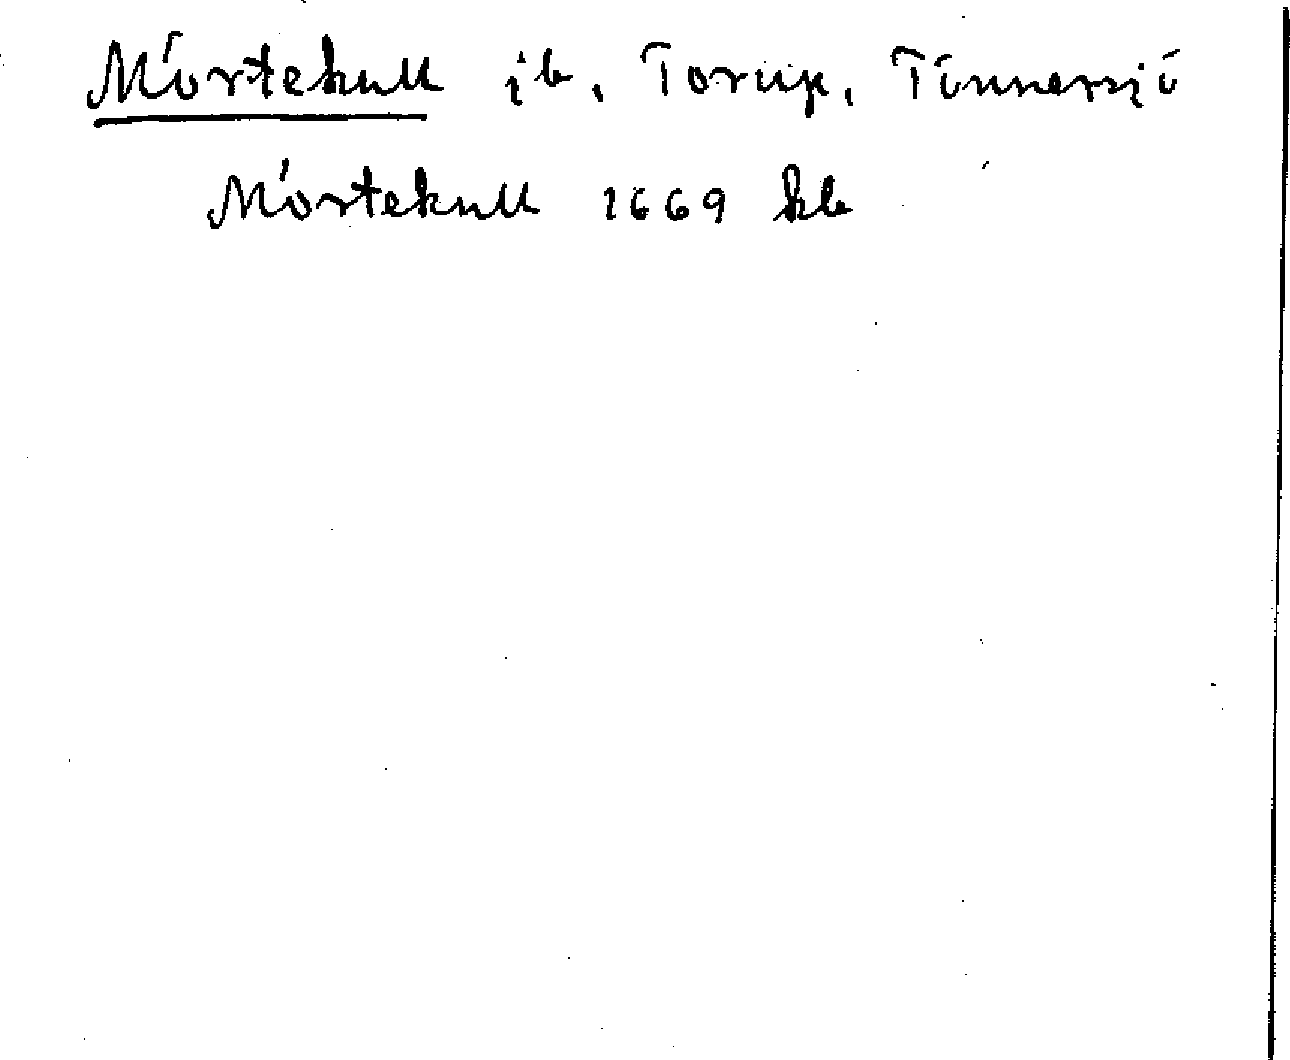 Mörtekull ib, Torup, Tönnersjö
Mörtekull 1669 kb